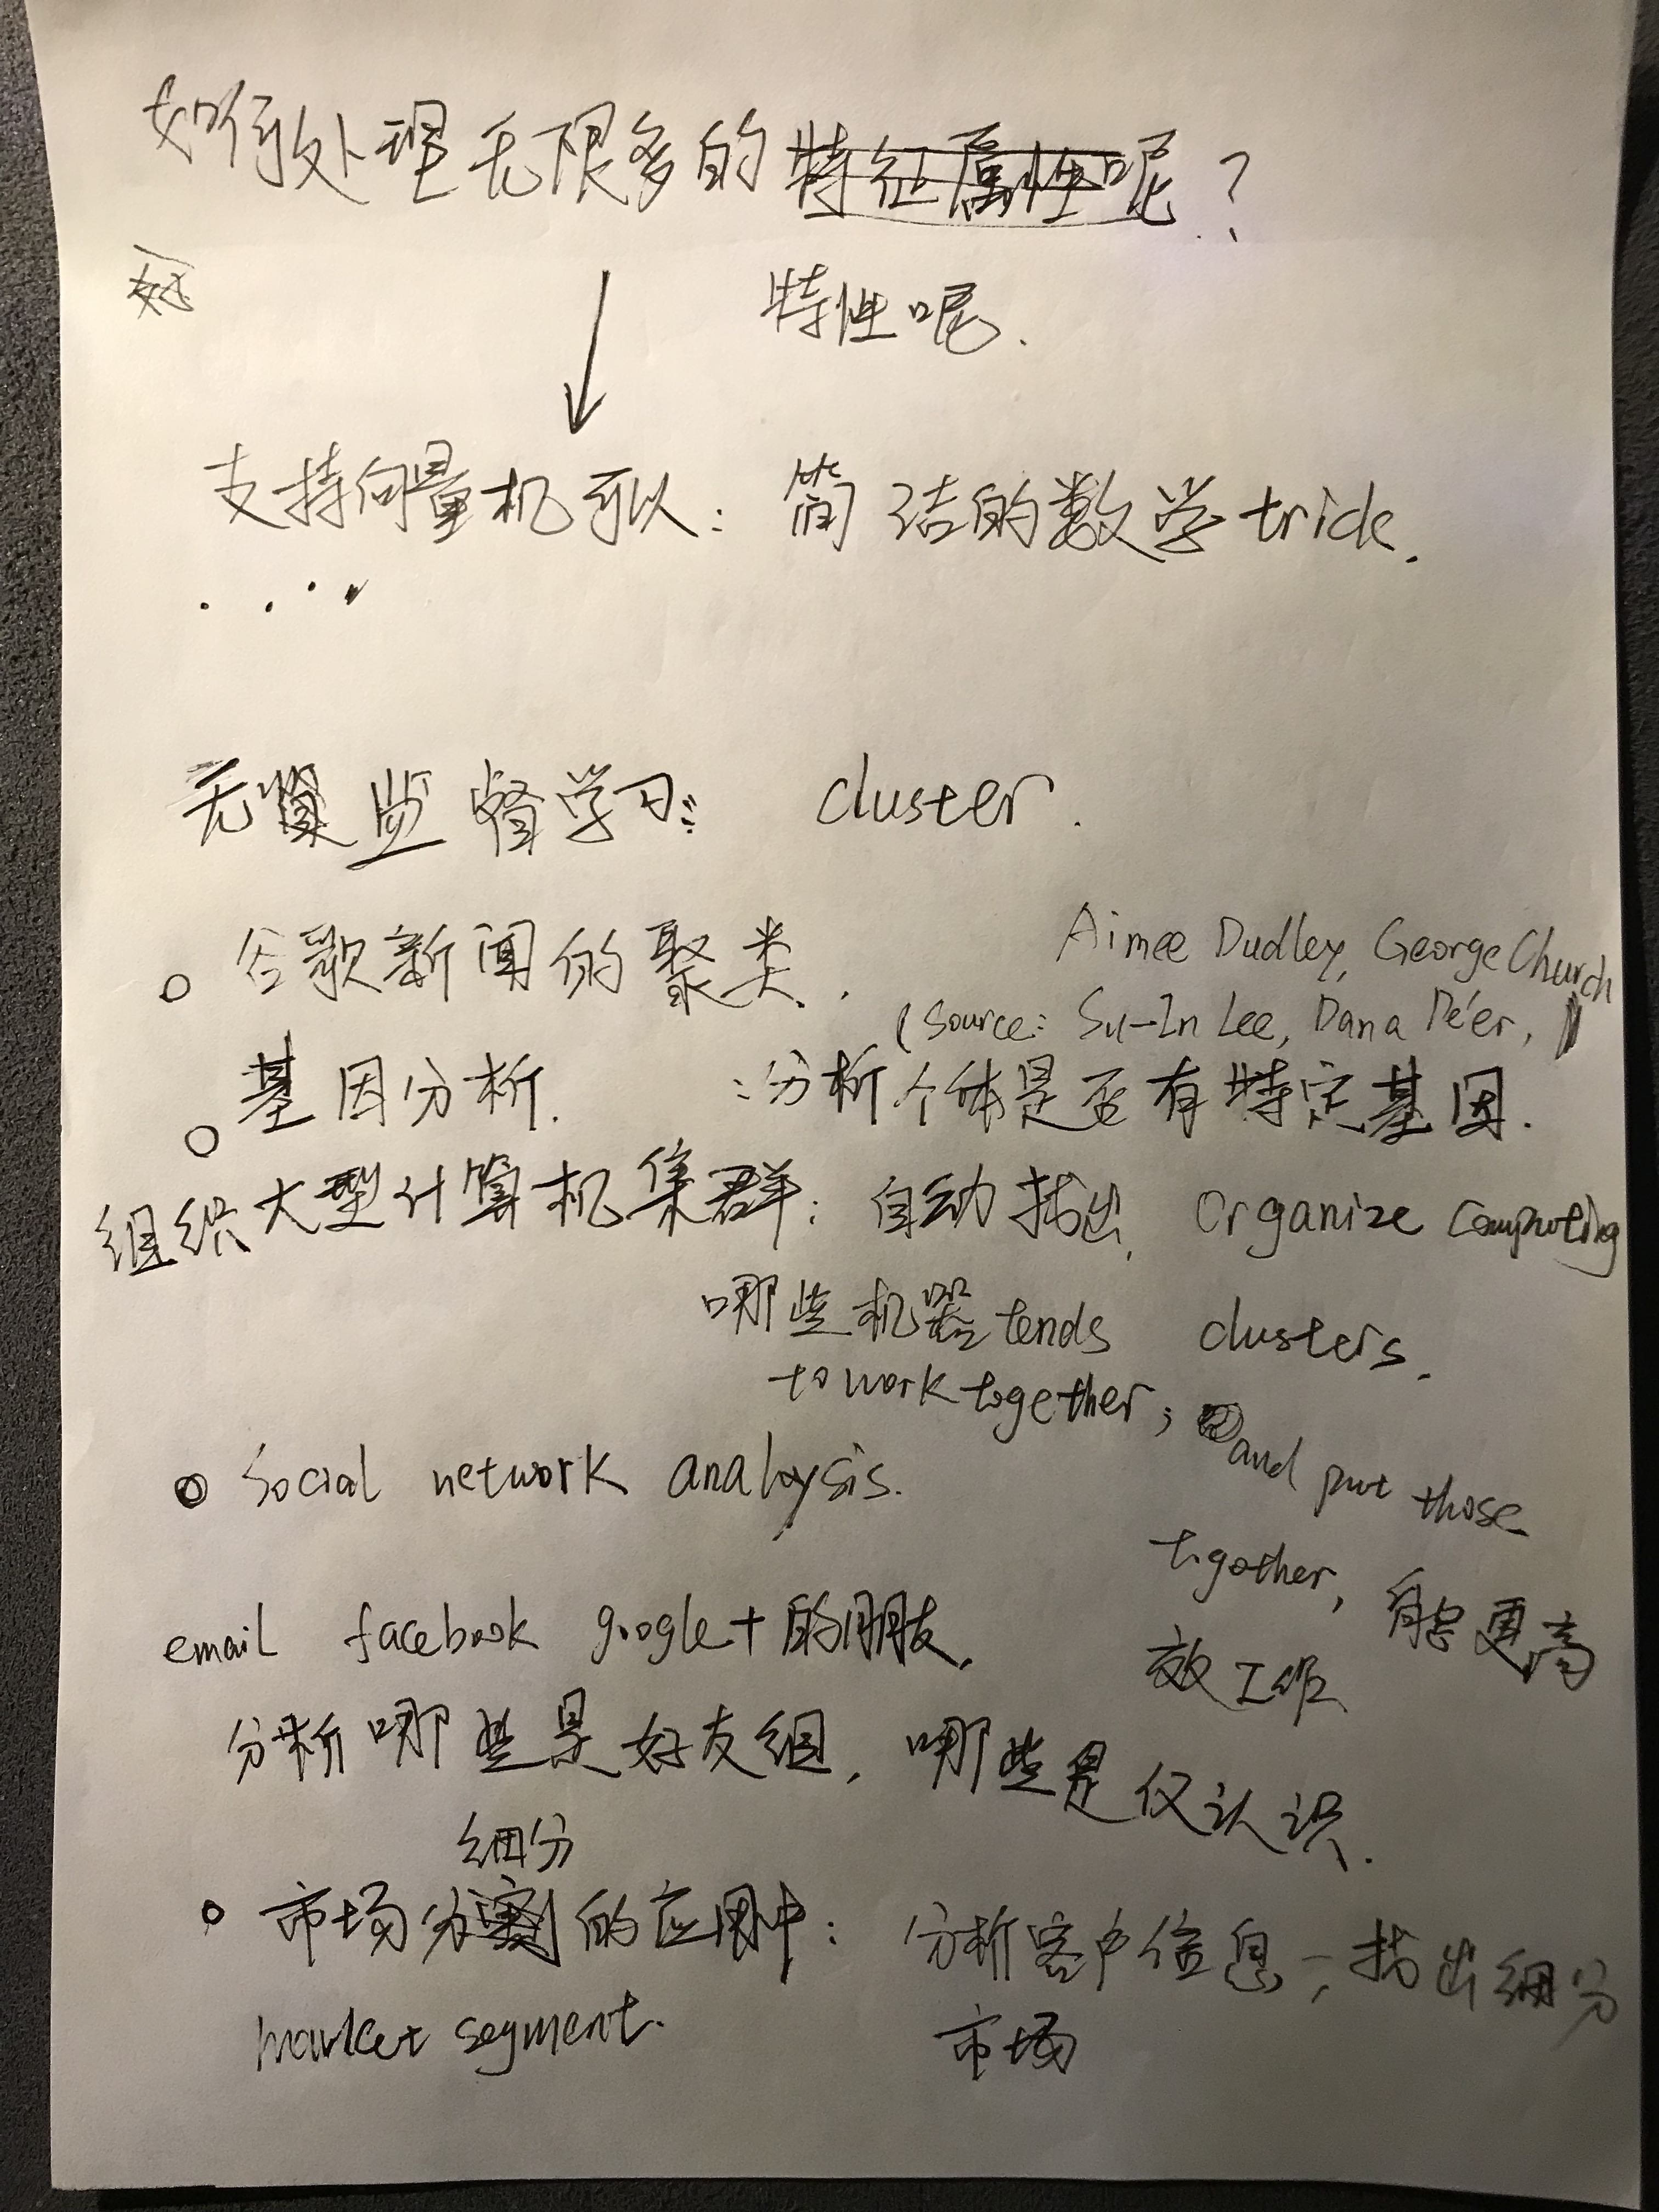 如何处理无限多的特征属性呢?
特性呢.
支持向量机可以: 简洁的数学trick.
....
无监督学习: cluster.
谷歌新闻的聚类.
Aimee Dudley, George Church
(Source: Su-In Lee, Dana Pe'er,
基因分析. :分析个体是否有特定基因.
组织大型计算机集群: 自动找出 Organize Computing
哪些机器tends clusters.
to work together; and put those
together, 能更高
效工作
Social network analysis.
email facebook google+的朋友,
分析哪些是好友组, 哪些是仅认识.
细分
市场分割的应用中: 分析客户信息, 找出细分
market segment. 市场